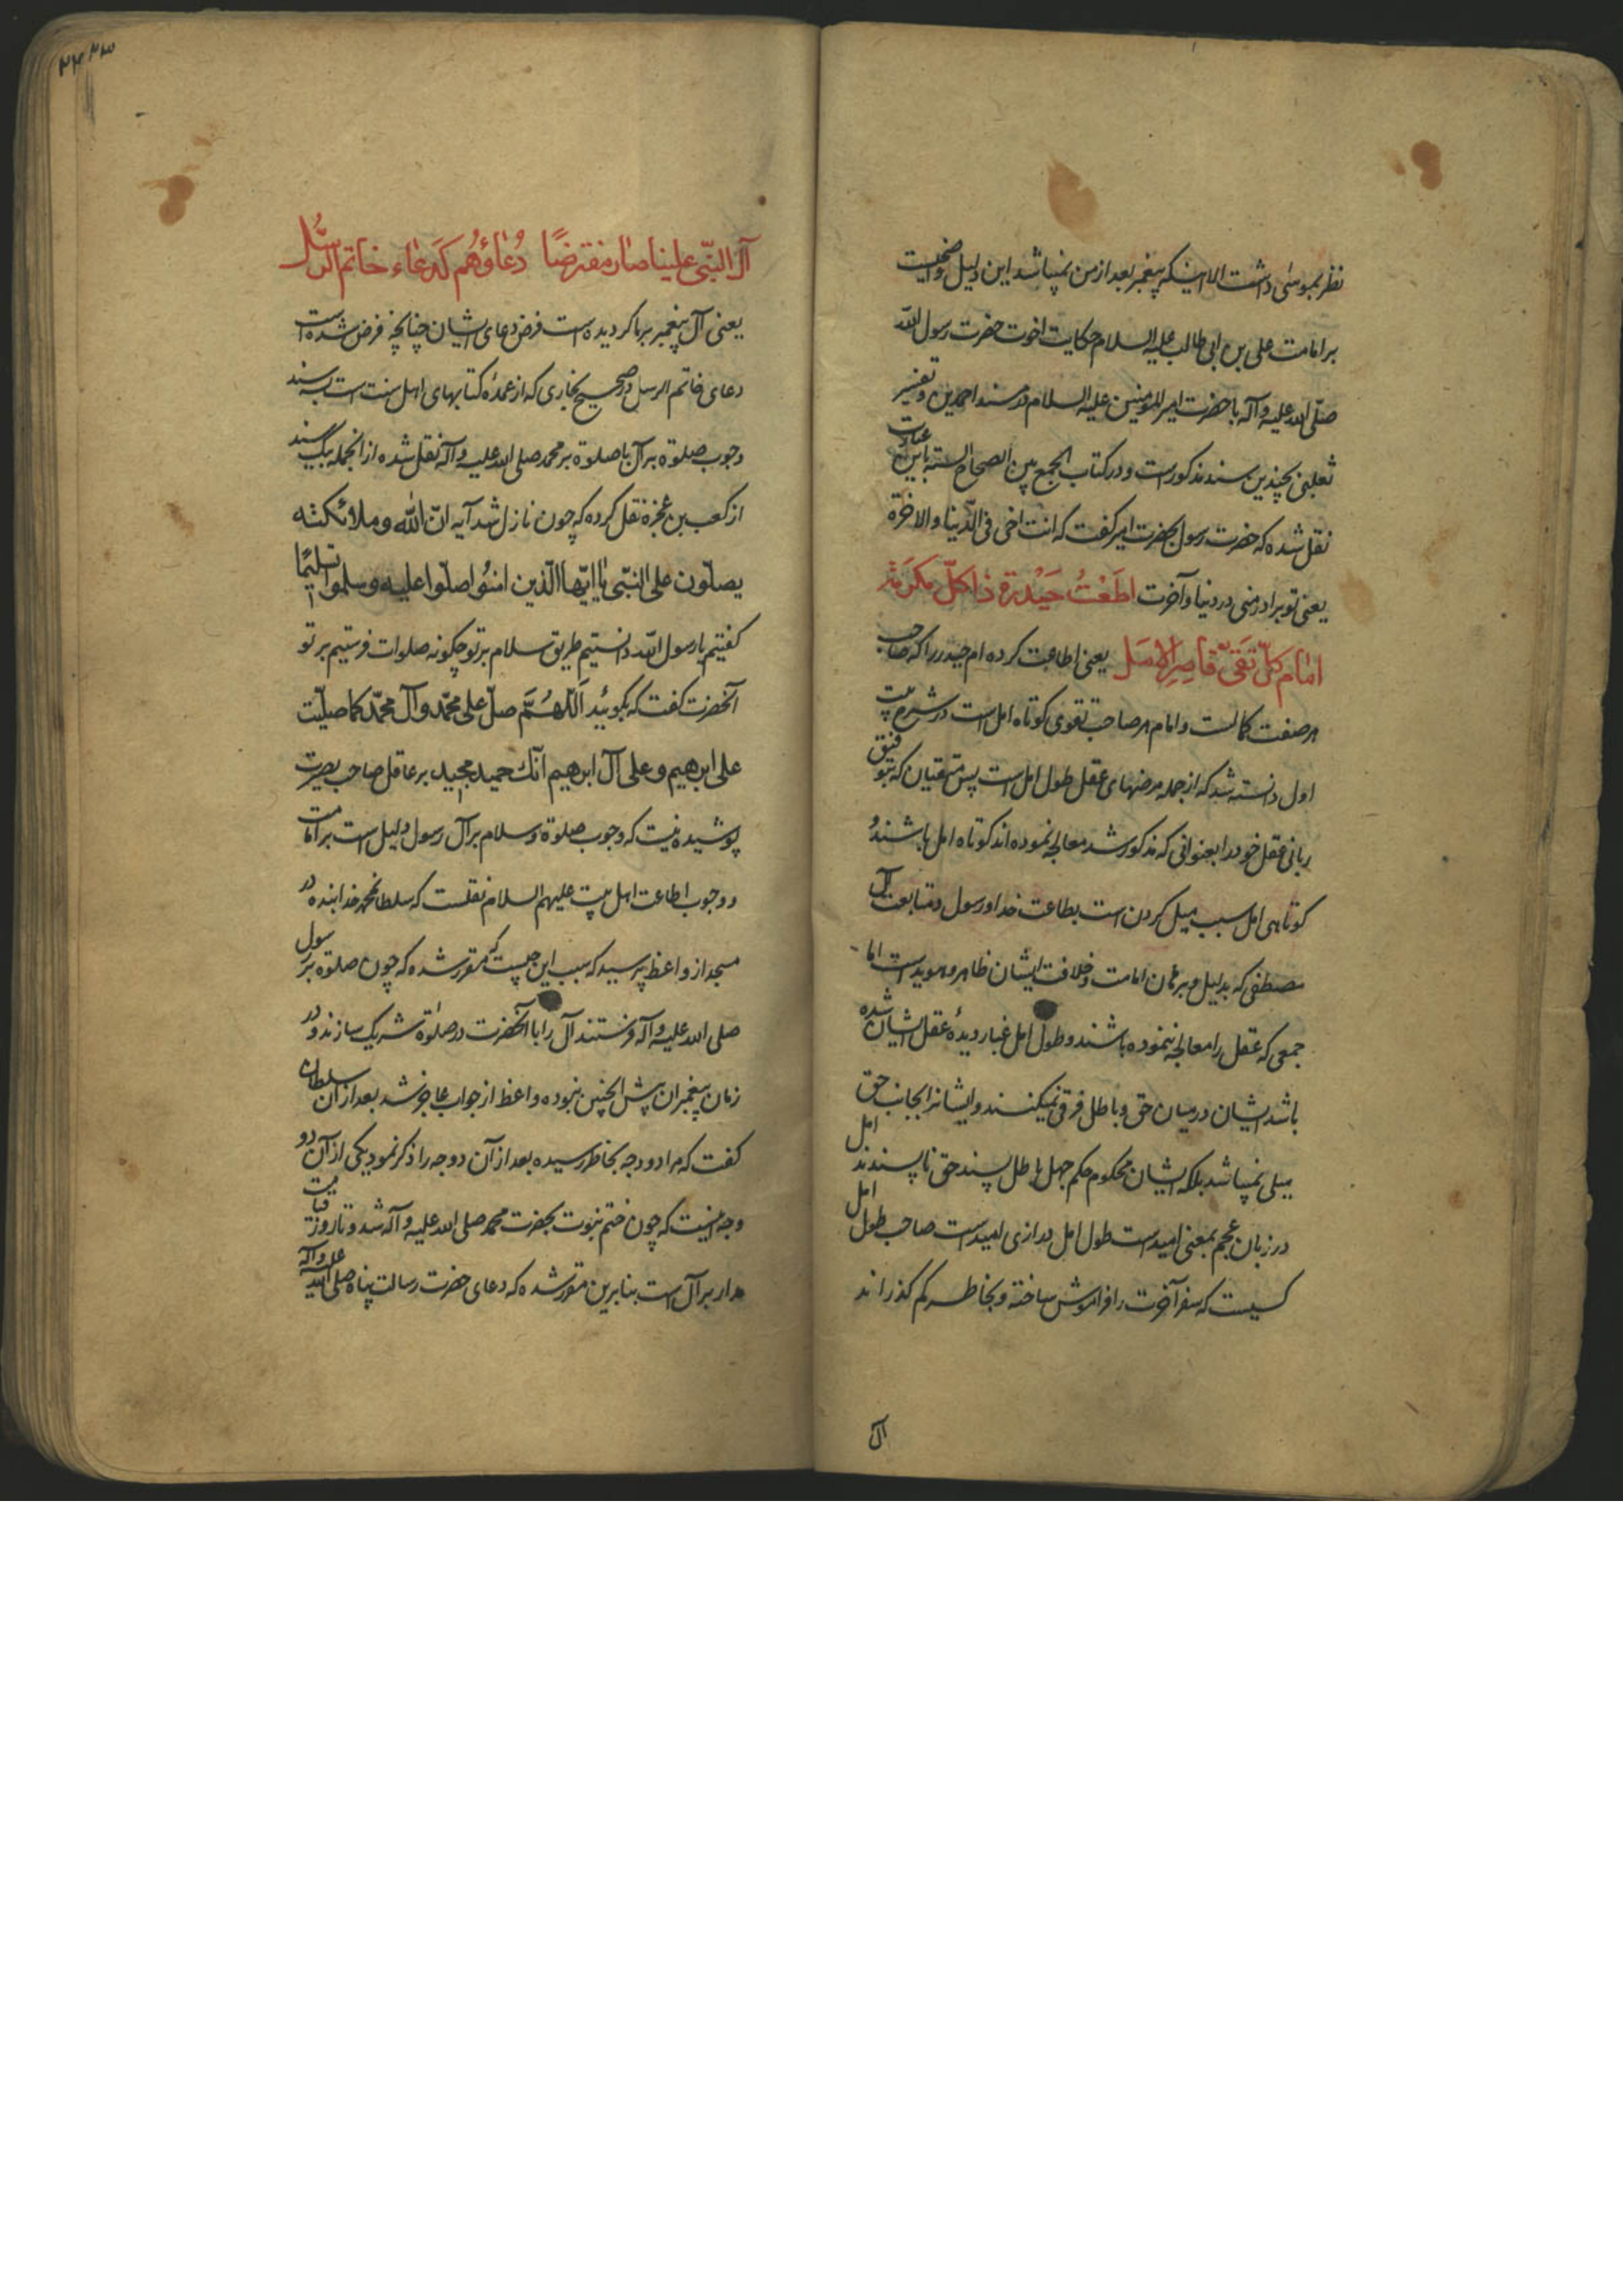 نظر بموسی داشت الا اینکه پیغمبر بعد از من نمیباشد این دلیل واضحیست
بر امامت علی بن ابی طالب علیه السلام حکایت اخوت حضرت رسول الله
صلی الله علیه و آله با حضرت امیر المومنین علیه السلام در مسند احمد بن و تفسیر
ثعلبی بچندین سند مذکور است و در کتاب الجمع بین الصحاح السته باین عبارت
نقل شده که حضرت رسول بحضرت امیر گفت که انت اخی فی الدّنیا والاخرة
یعنی تو برادر منی در دنیا و آخرت اطَعْتُ حَیْدَرةَ ذا کلّ مکرَمة
امام کلّ تقیّ قاصِرِ الامَل یعنی اطاعت کرده ام حیدر را که صاحب
هر صفت کمالست و امام هر صاحب تقوی کوتاه امل است در شرح بیت
اول دانسته شد که از جمله مرضهای عقل طول امل است پس متقیان که بتوفیق
ربانی عقل خود را بعنوانی که مذکور شد معالجه نموده اند کوتاه امل باشند و
کوتاهی امل سبب میل کردن است بطاعت خدا و رسول و متابعت آل
مصطفی که بدلیل و برهان امامت و خلافت ایشان ظاهر و هویداست اما
جمعی که عقل را معالجه ننموده باشند و طول امل غبار دیدهٔ عقل ایشان شده
باشد ایشان درمیان حق و باطل فرقی نمیکنند و ایشانرا بجانب حق
میلی نمیباشد بلکه ایشان محکوم حکم جهل باطل پسند حق ناپسندند امل
در زبان عجم بمعنی امیدست طول امل درازی امیدست صاحب طول امل
کسیست که سفر آخرت را فراموش ساخته و بخاطر کم گذراند
آل
۲۴۲۳
آل النبّی علینا صار مفترضًا دُعاؤهُم کدعاء خاتم الرسُل
یعنی آل پیغمبر بر ما گردیده است فرض دعای ایشان چنانچه فرض شده است
دعای خاتم الرسل در صحیح بخاری که از عمدهٔ کتابهای اهل سنت است بسه سند
وجوب صلوة بر آل با صلوة بر محمد صلی الله علیه و آله نقل شده از انجمله بیک سند
از کعب بن عجزه نقل کرده که چون نازل شد آیه انّ الله وملائکته
یصلّون علی النبّی یا ایّها الّذین امنُوا صلّوا علیه وسلموا تسلیمًا
گفتیم یا رسول الله دانستیم طریق سلام بر تو چگونه صلوات فرستیم بر تو
آنحضرت گفت که بگوئید اللّهُمَّ صلّ علی محمّد وآل محمّد کما صلّیت
علی ابرهیم وعلی آل ابرهیم انّک حمید مجید بر عاقل صاحب بصیرت
پوشیده نیست که وجوب صلوة و سلام بر آل رسول دلیل است بر امامت
و وجوب اطاعت اهل بیت علیهم السلام نقلست که سلطانمحمد خدابنده در
مسجد از واعظ پرسید که سبب این چیست که مقرر شده که چون صلوة بر رسول
صلی الله علیه و آله فرستند آل را با آنحضرت در صلوة شریک سازند و در
زمان پیغمبران پیش اینچنین نبوده واعظ از جواب عاجز شد بعد از آن سلطان
گفت که مرا دو وجه بخاطر رسیده بعد از آن دو وجه را ذکر نمود یکی از آن دو
وجه اینست که چون ختم نبوت بحضرت محمد صلی الله علیه و آله شد و تا روز قیامت
مدار بر آل است بنابرین مقرر شده که دعای حضرت رسالت پناه صلی الله علیه و آله